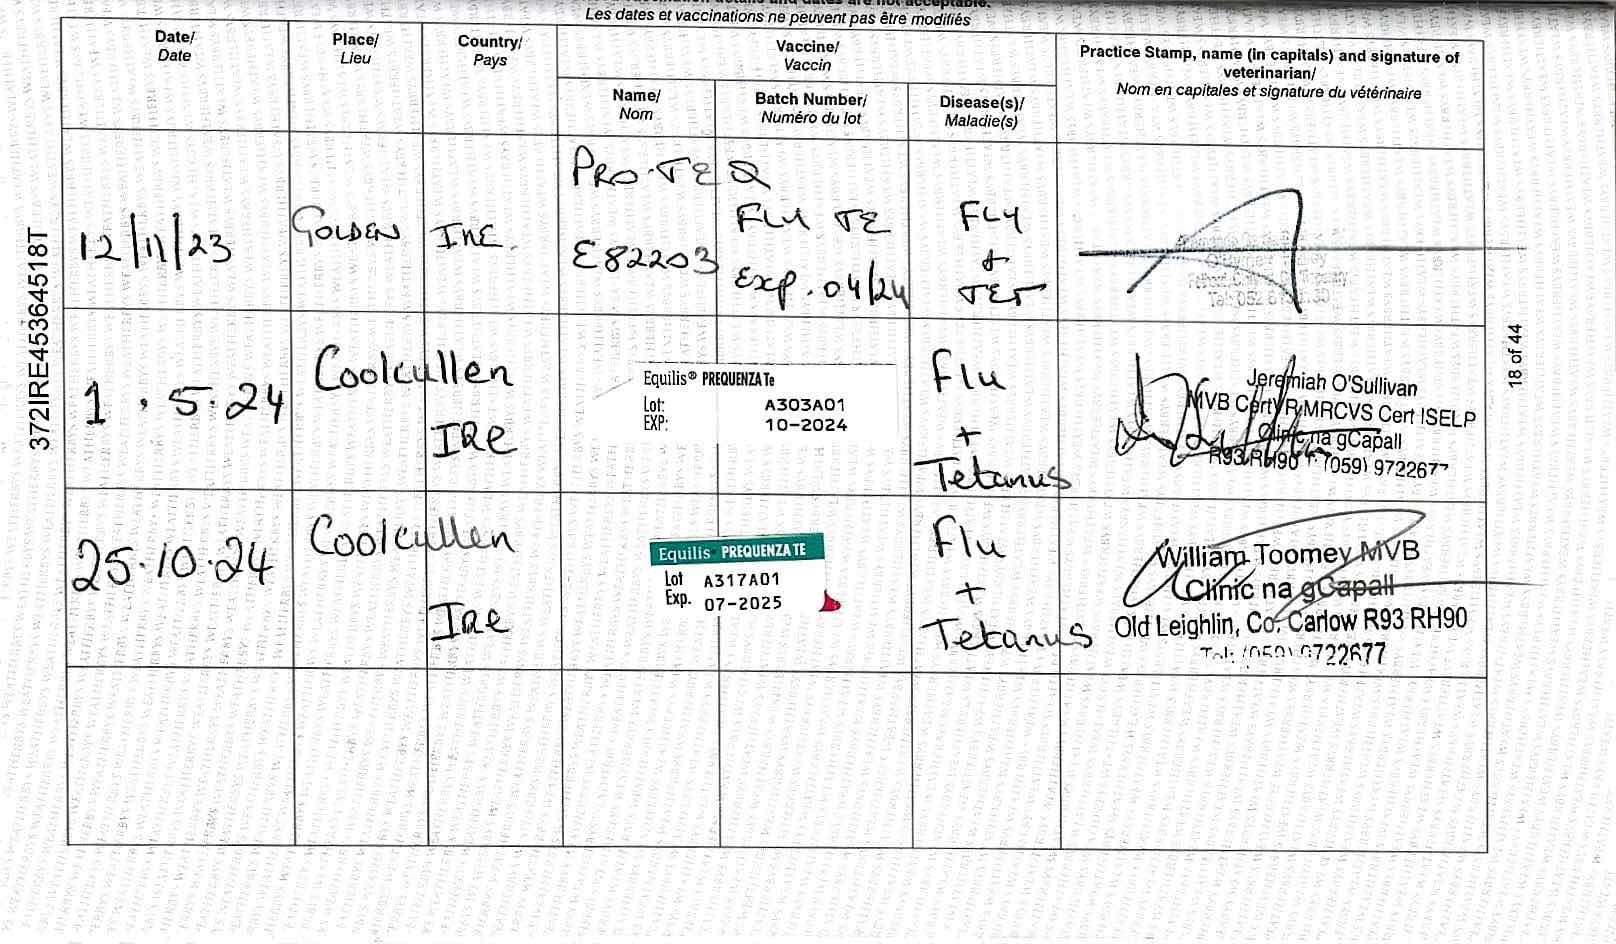 Les dates et vaccinations ne peuvent pas être modifiés
Date/
Date
Place/
Lieu
Country/
Pays
Vaccine/
Vaccin
Name/
Nom
Batch Number/
Numéro du lot
Disease(s)/
Maladie(s)
Practice Stamp, name (in capitals) and signature of
veterinarian/
Nom en capitales et signature du vétérinaire
12/11/23
GOLDEN
IRE.
PRO-TEQ
FLU TE
E82203
Exp. 04/24
FLU
+
TET
Tel: 052
1.5.24
Coolcullen
IRE
Equilis® PREQUENZA Te
Lot: A303A01
EXP: 10-2024
Flu
+
Tetanus
Jeremiah O'Sullivan
MVB CertVR MRCVS Cert ISELP
Clinic na gCapall
R93 RH90 T: (059) 9722677
25.10.24
Coolcullen
IRE
Equilis PREQUENZA TE
Lot A317A01
Exp. 07-2025
Flu
+
Tetanus
William Toomey MVB
Clinic na gCapall
Old Leighlin, Co. Carlow R93 RH90
Tel: (059) 9722677
372IRE453645518T
18 of 44